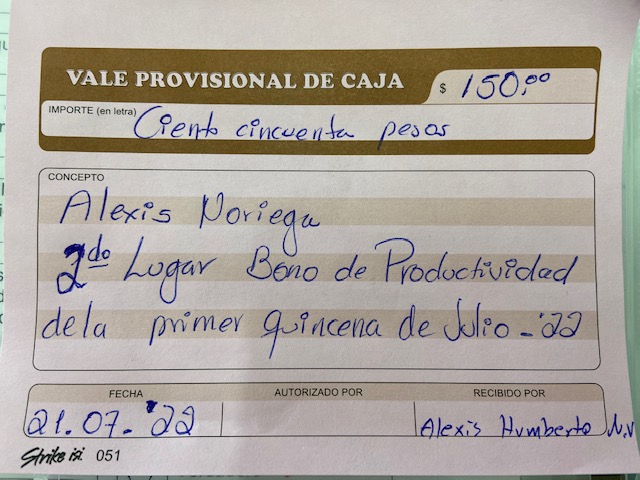 VALE PROVISIONAL DE CAJA $ 150.00
IMPORTE (en letra) Ciento cincuenta pesos
CONCEPTO
Alexis Noriega
2do Lugar Bono de Productividad
de la primer quincena de Julio - '22
FECHA AUTORIZADO POR RECIBIDO POR
21.07.'22 Alexis Humberto N.V
Strike isi 051